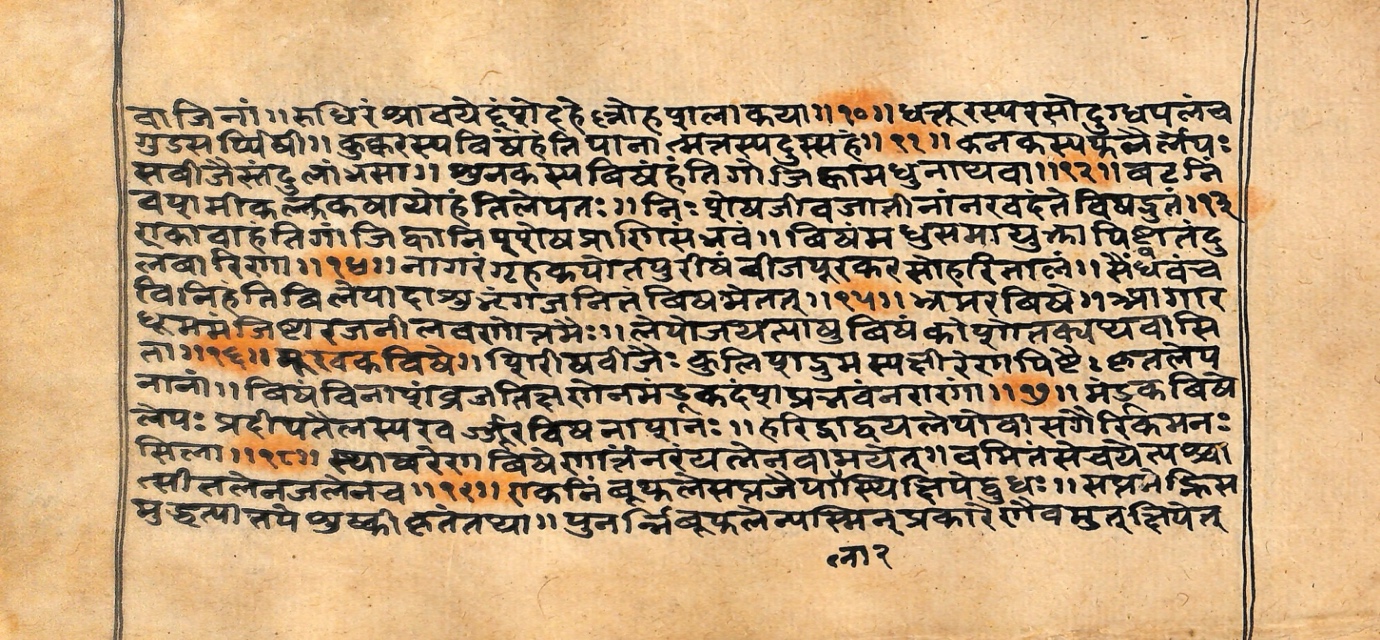 वाजिनां॥ रुधिरं श्रावयेद्दंशे दहेल्लोहशलाकया॥१०॥ धत्तूरस्यरसोदुग्धपलंच
गुडसर्प्पिषी॥ कुक्करस्यविषंहंतिपाना त्मत्तस्यदुस्सहं॥११॥ कनकस्यफलैर्लेपः
सवीजैस्तंदुलांभसा॥ शुनकस्यविषंहंतिगोजिह्वामधुनाथवा॥१२॥ वटनिं
वशमीकल्ककषायोहंतिलेपतः॥ निःशेषजीवजातीनांनखदंतविषद्रुतं॥१३
एकावाहंतिगोजिह्वानिश्शेषप्राणिसंभवं॥ विषंमधुसमायुक्तापिष्टातंदु
लवारिणा॥१४॥ नागरंगृहकपोतपुरीषंवीजपूरकरसोहरितालं॥ सैंधवंच
विनिहंतिविलेपादाशुभृंगजनितंविषमेतत्॥१५॥ भ्रमरविषे॥ आगार
धूममंजिष्ठारजनीलवणोत्तमैः॥ लेपोजयत्याशुविषंकोशातक्यथवासि
ता॥१६॥ मूखकविषे॥ शिरीषवीजैः कुलिशद्रुमस्यक्षीरेणपिष्टैः कृतलेप
नानां॥ विषंविनाशंव्रजतिक्षणेनमंडूकदंशप्रभवंनराणां॥१७॥ मंडूकविषे
लेपः प्रदीपतैलस्यखर्जूरविषनाशनः॥ हरिद्राद्वयलेपोवासगैरिकमनः
सिला॥१८॥ स्थावरेणविषेणार्त्तंनरंयत्नेनवामयेत्॥ वमितंसेचयेत्पश्चा
त्सीतलेनजलेनच॥१९॥ एकनिंबूफलेसप्तजैपालास्थिक्षिपेद्बुधः॥ सप्तमेह्निस
मुद्धृत्यातपेशुष्कीकृतंतथा॥ पुनर्न्निंबूफलेन्यस्मिन्प्रकारेणैवमुत्क्षिपेत्